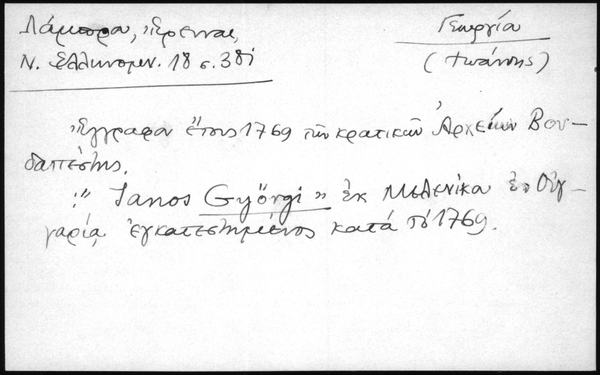 Λάμπρου, Ἔρευναι,
Ν. Ἑλληνομν. 18 σ. 381
Γεωργία
(Ἰωάννης)
Ἔγγραφον ἔτους 1769 τῶν κρατικῶν Ἀρχείων Βου-
δαπέστης.
:" Janos Györgi" ἐκ Μελενίκα ἐν Οὑγ-
γαρίᾳ ἐγκατεστημένος κατά τό 1769.